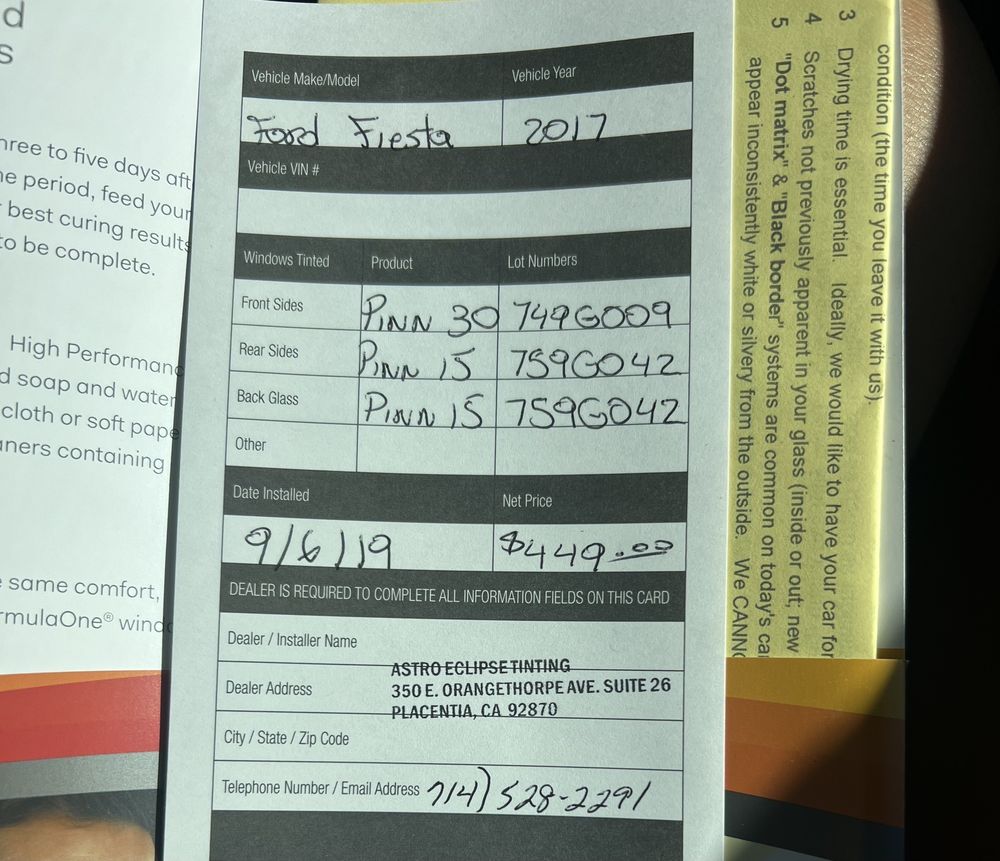 d
s
hree to five days aft
e period, feed your
best curing results
to be complete.
High Performanc
d soap and water
cloth or soft pape
aners containing
same comfort,
rmulaOne® wind
Vehicle Make/Model Vehicle Year
Ford Fiesta 2017
Vehicle VIN #
Windows Tinted Product Lot Numbers
Front Sides PINN 30 749G009
Rear Sides PINN 15 759G042
Back Glass PINN 15 759G042
Other
Date Installed Net Price
9/6/19 $449.00
DEALER IS REQUIRED TO COMPLETE ALL INFORMATION FIELDS ON THIS CARD
Dealer / Installer Name
ASTRO ECLIPSE TINTING
Dealer Address 350 E. ORANGETHORPE AVE. SUITE 26
PLACENTIA, CA 92870
City / State / Zip Code
Telephone Number / Email Address 714) 528-2291
condition (the time you leave it with us).
3 Drying time is essential. Ideally, we would like to have your car for
4 Scratches not previously apparent in your glass (inside or out; new
5 "Dot matrix" & "Black border" systems are common on today's ca
appear inconsistently white or silvery from the outside. We CANNO